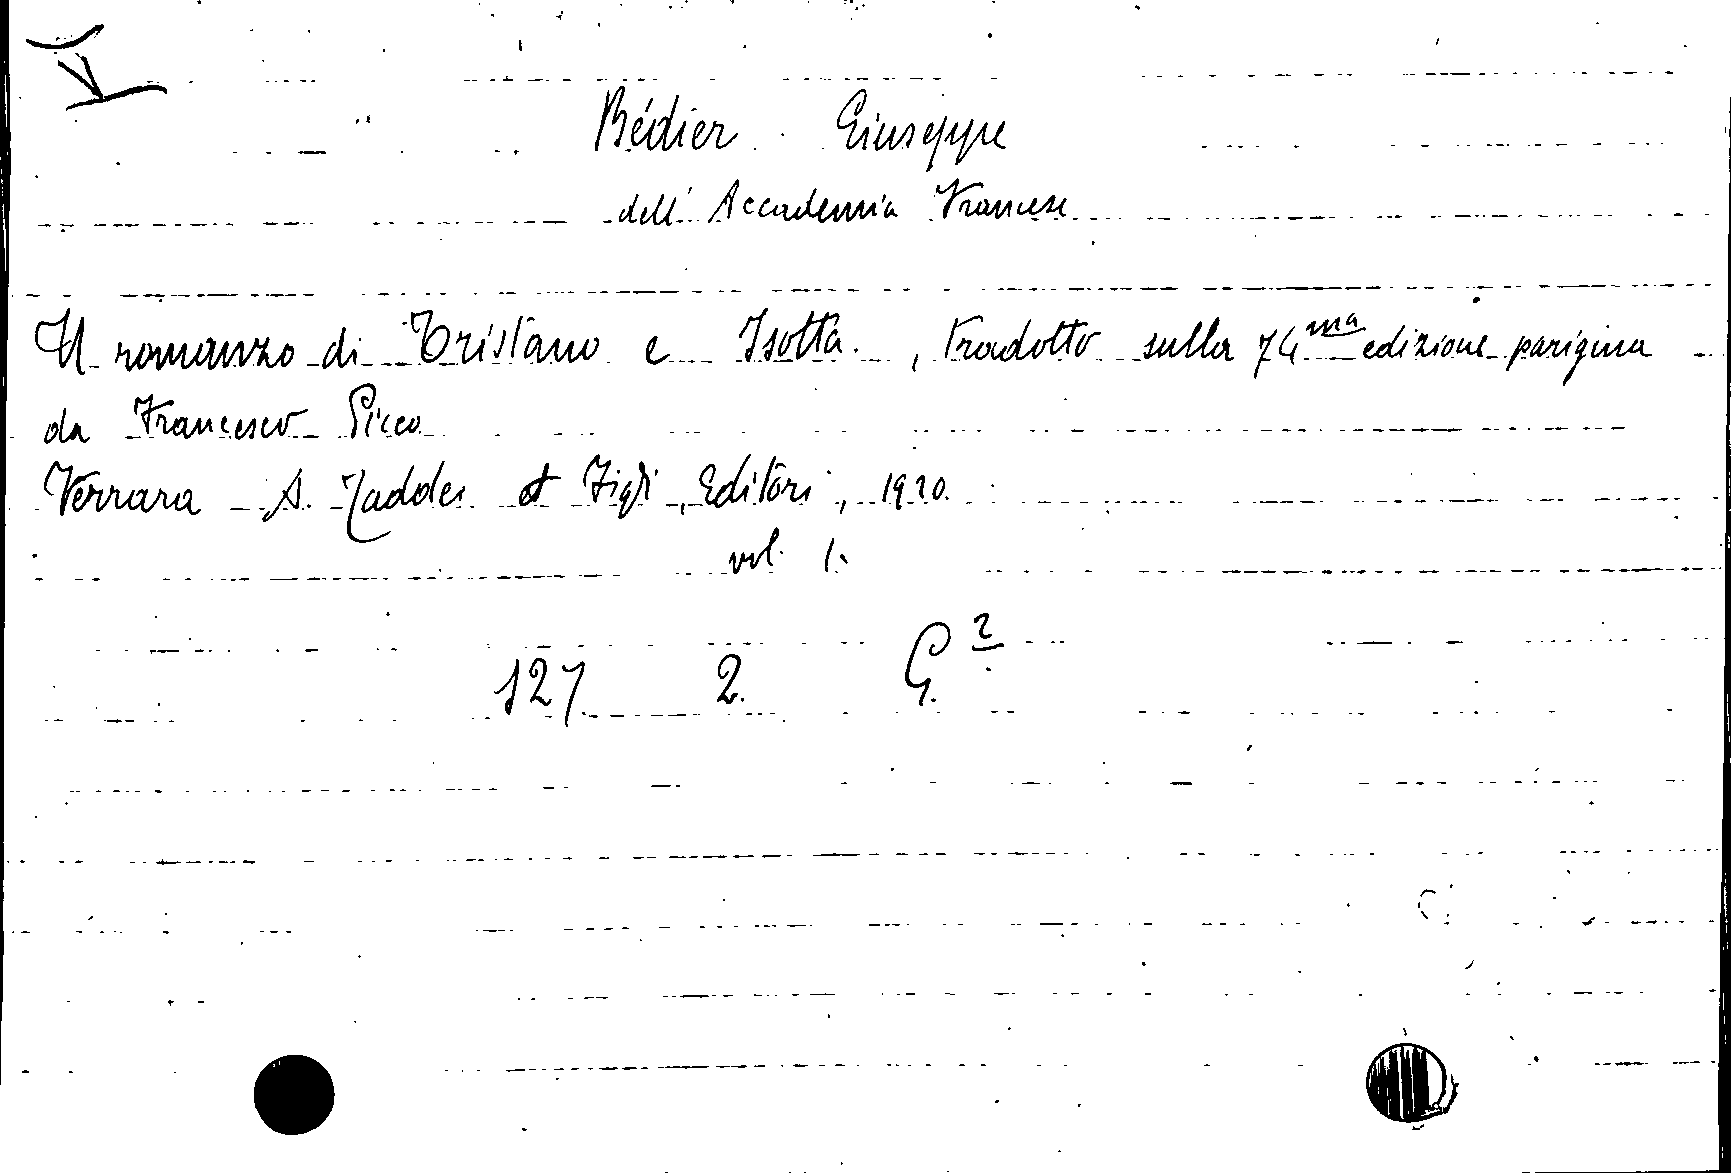 Bédier Giuseppe
dell'Accademia Francese
Il romanzo di Tristano e Isotta., tradotto sulla 74ma edizione parigina
da Francesco Picco
Ferrara A. Taddei et Figli, Editori, 1920.
vol. 1.
127 2. G.2